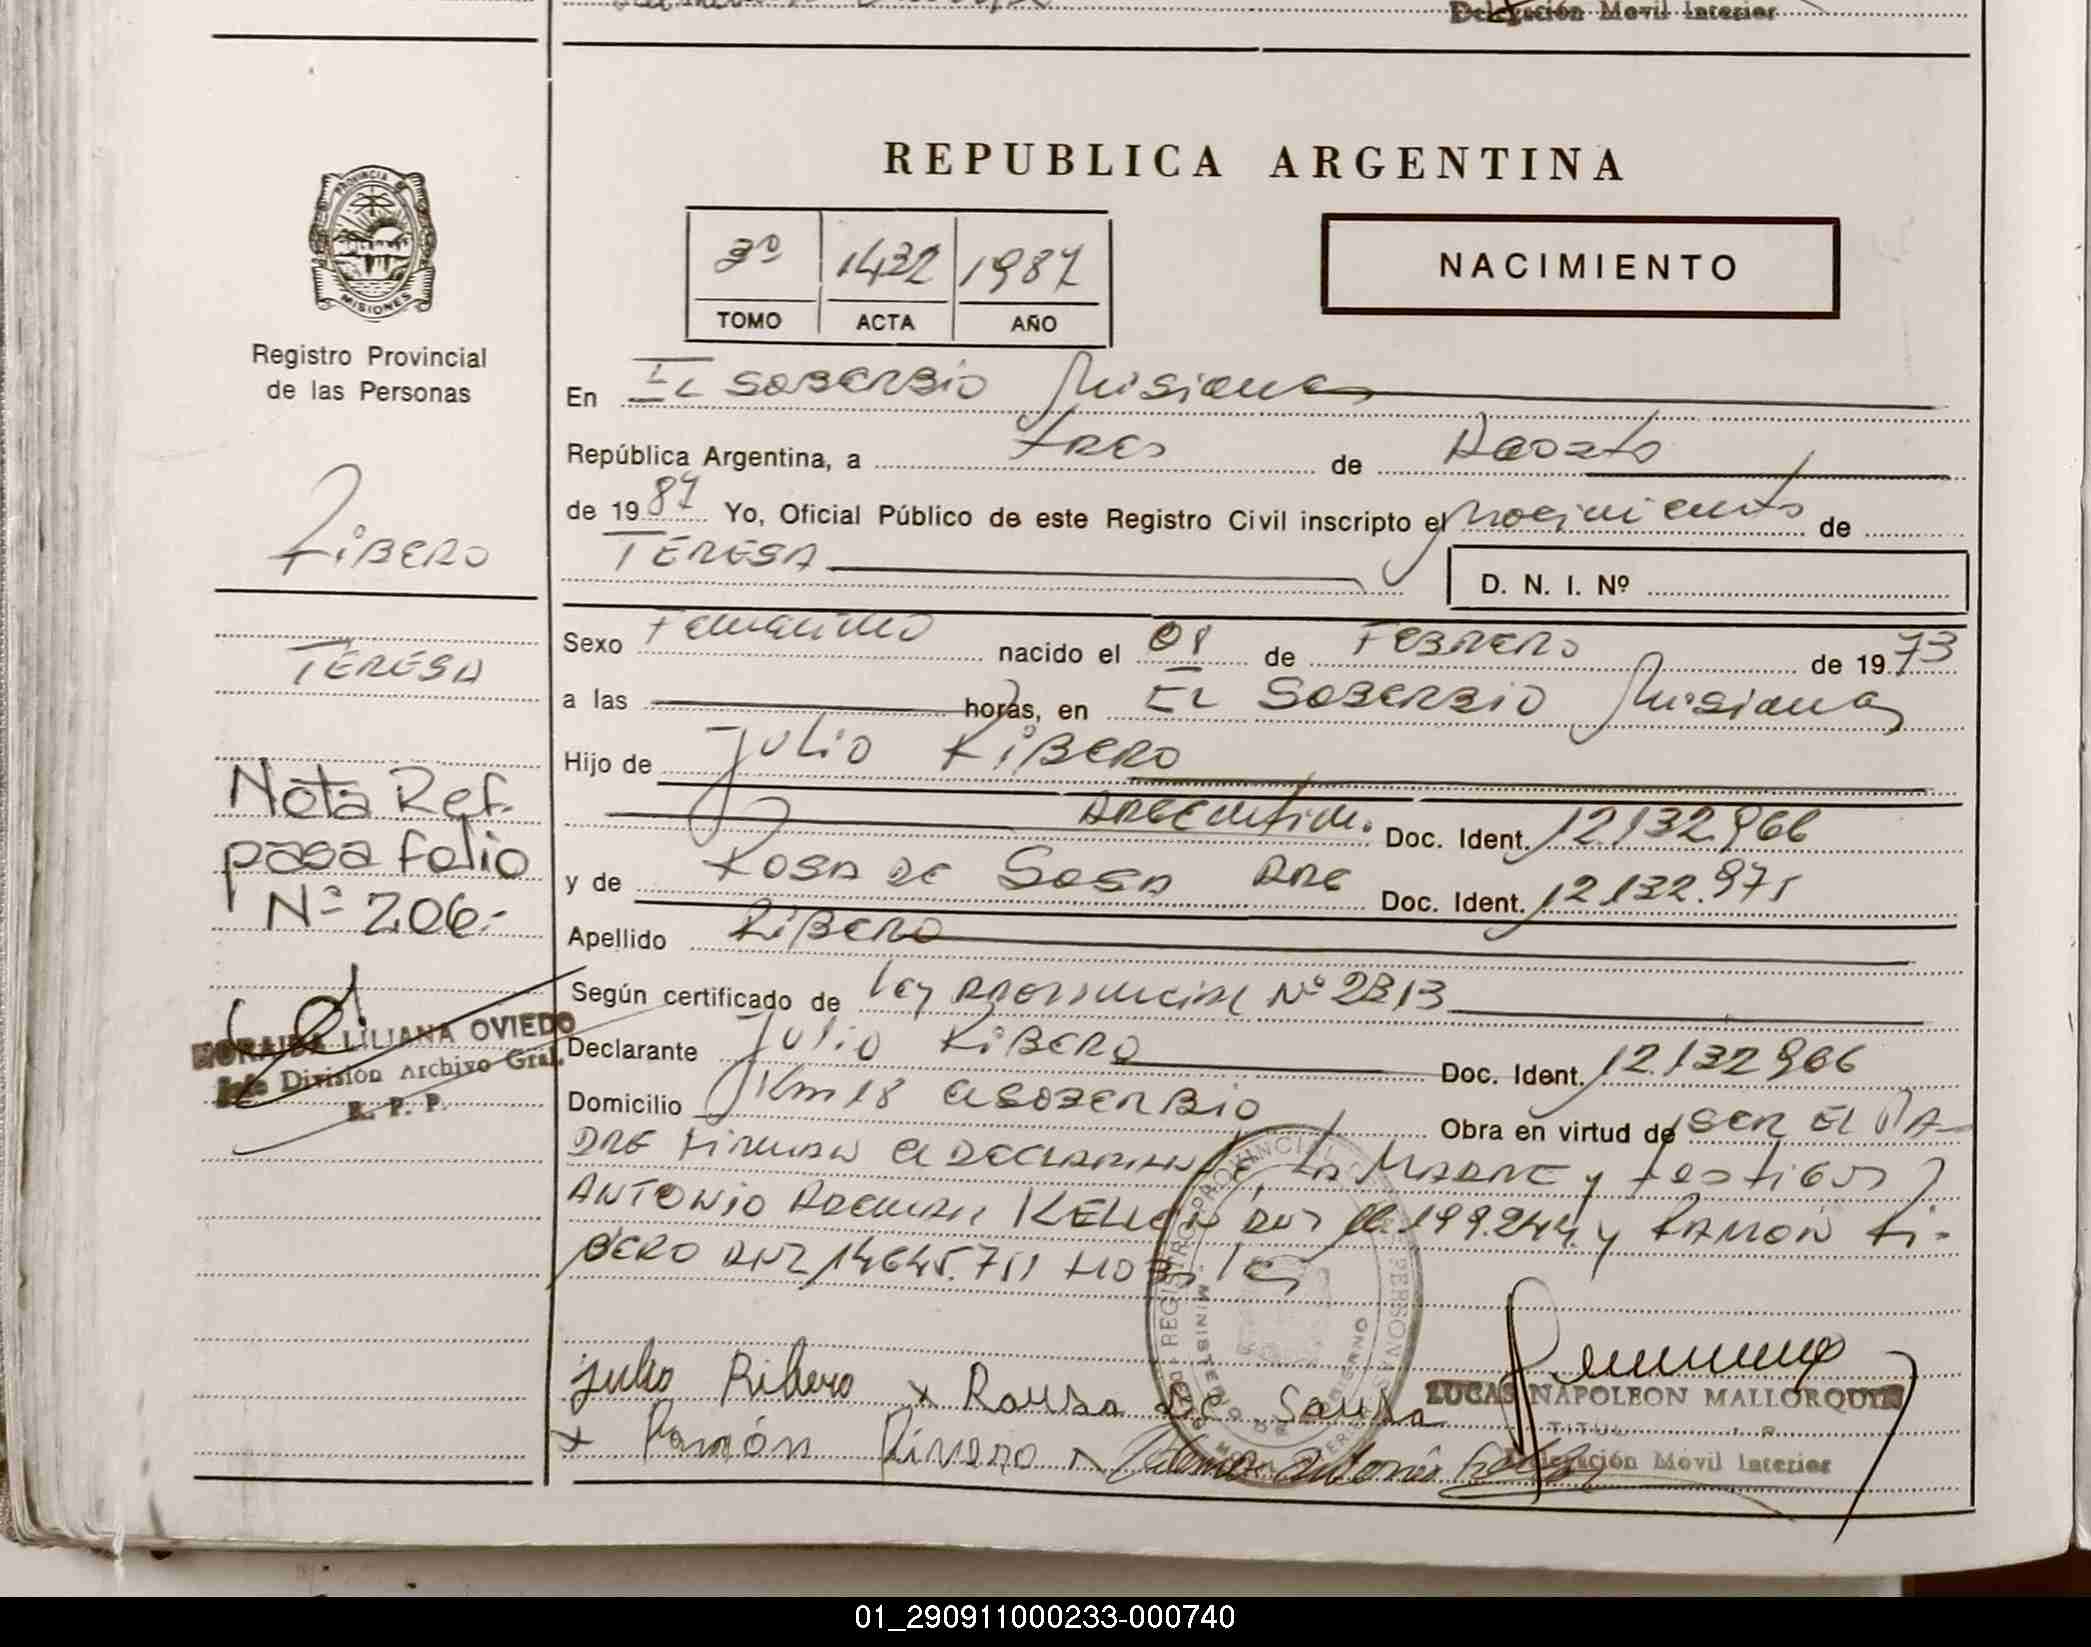 Delegación Movil Interior
REPUBLICA ARGENTINA
3º 1432 1987
TOMO ACTA AÑO
NACIMIENTO
PROVINCIA DE
MISIONES
Registro Provincial
de las Personas
RiBERO
TERESA
Nota Ref.
pasa folio
Nº 206.-
LILIANA OVIEDO
Jefe División Archivo Gral.
R. P. P.
En EL SOBERBIO Misiones
República Argentina, a tres de Agosto
de 1987 Yo, Oficial Público de este Registro Civil inscripto el nacimiento de
TERESA
D. N. I. Nº
Sexo Femenino nacido el 08 de FEBRERO de 1973
a las horas, en EL SOBERBIO Misiones
Hijo de Julio RiBERO
ARGENtin. Doc. Ident. 12.132.966
y de ROSA DE SOSA ARG Doc. Ident. 12.132.975
Apellido RiBERO
Según certificado de Ley provincial Nº 2313
Declarante Julio RiBERO Doc. Ident. 12.132966
Domicilio Km 18 elSOBERBIO Obra en virtud de SER EL PA-
DRE FiRMAN el DECLARANte, LA MADRE y testigos
ANTONIO y RAMON Ri-
BERO DNI 14645.751
Julio Ribero x Rousa de Sousa
x Ramón Rivero
LUCAS NAPOLEON MALLORQUIN
TITUL
Delegación Movil Interior
REGISTRO PROVINCIAL DE LAS PERSONAS
MINISTERIO DE GOBIERNO
01_290911000233-000740